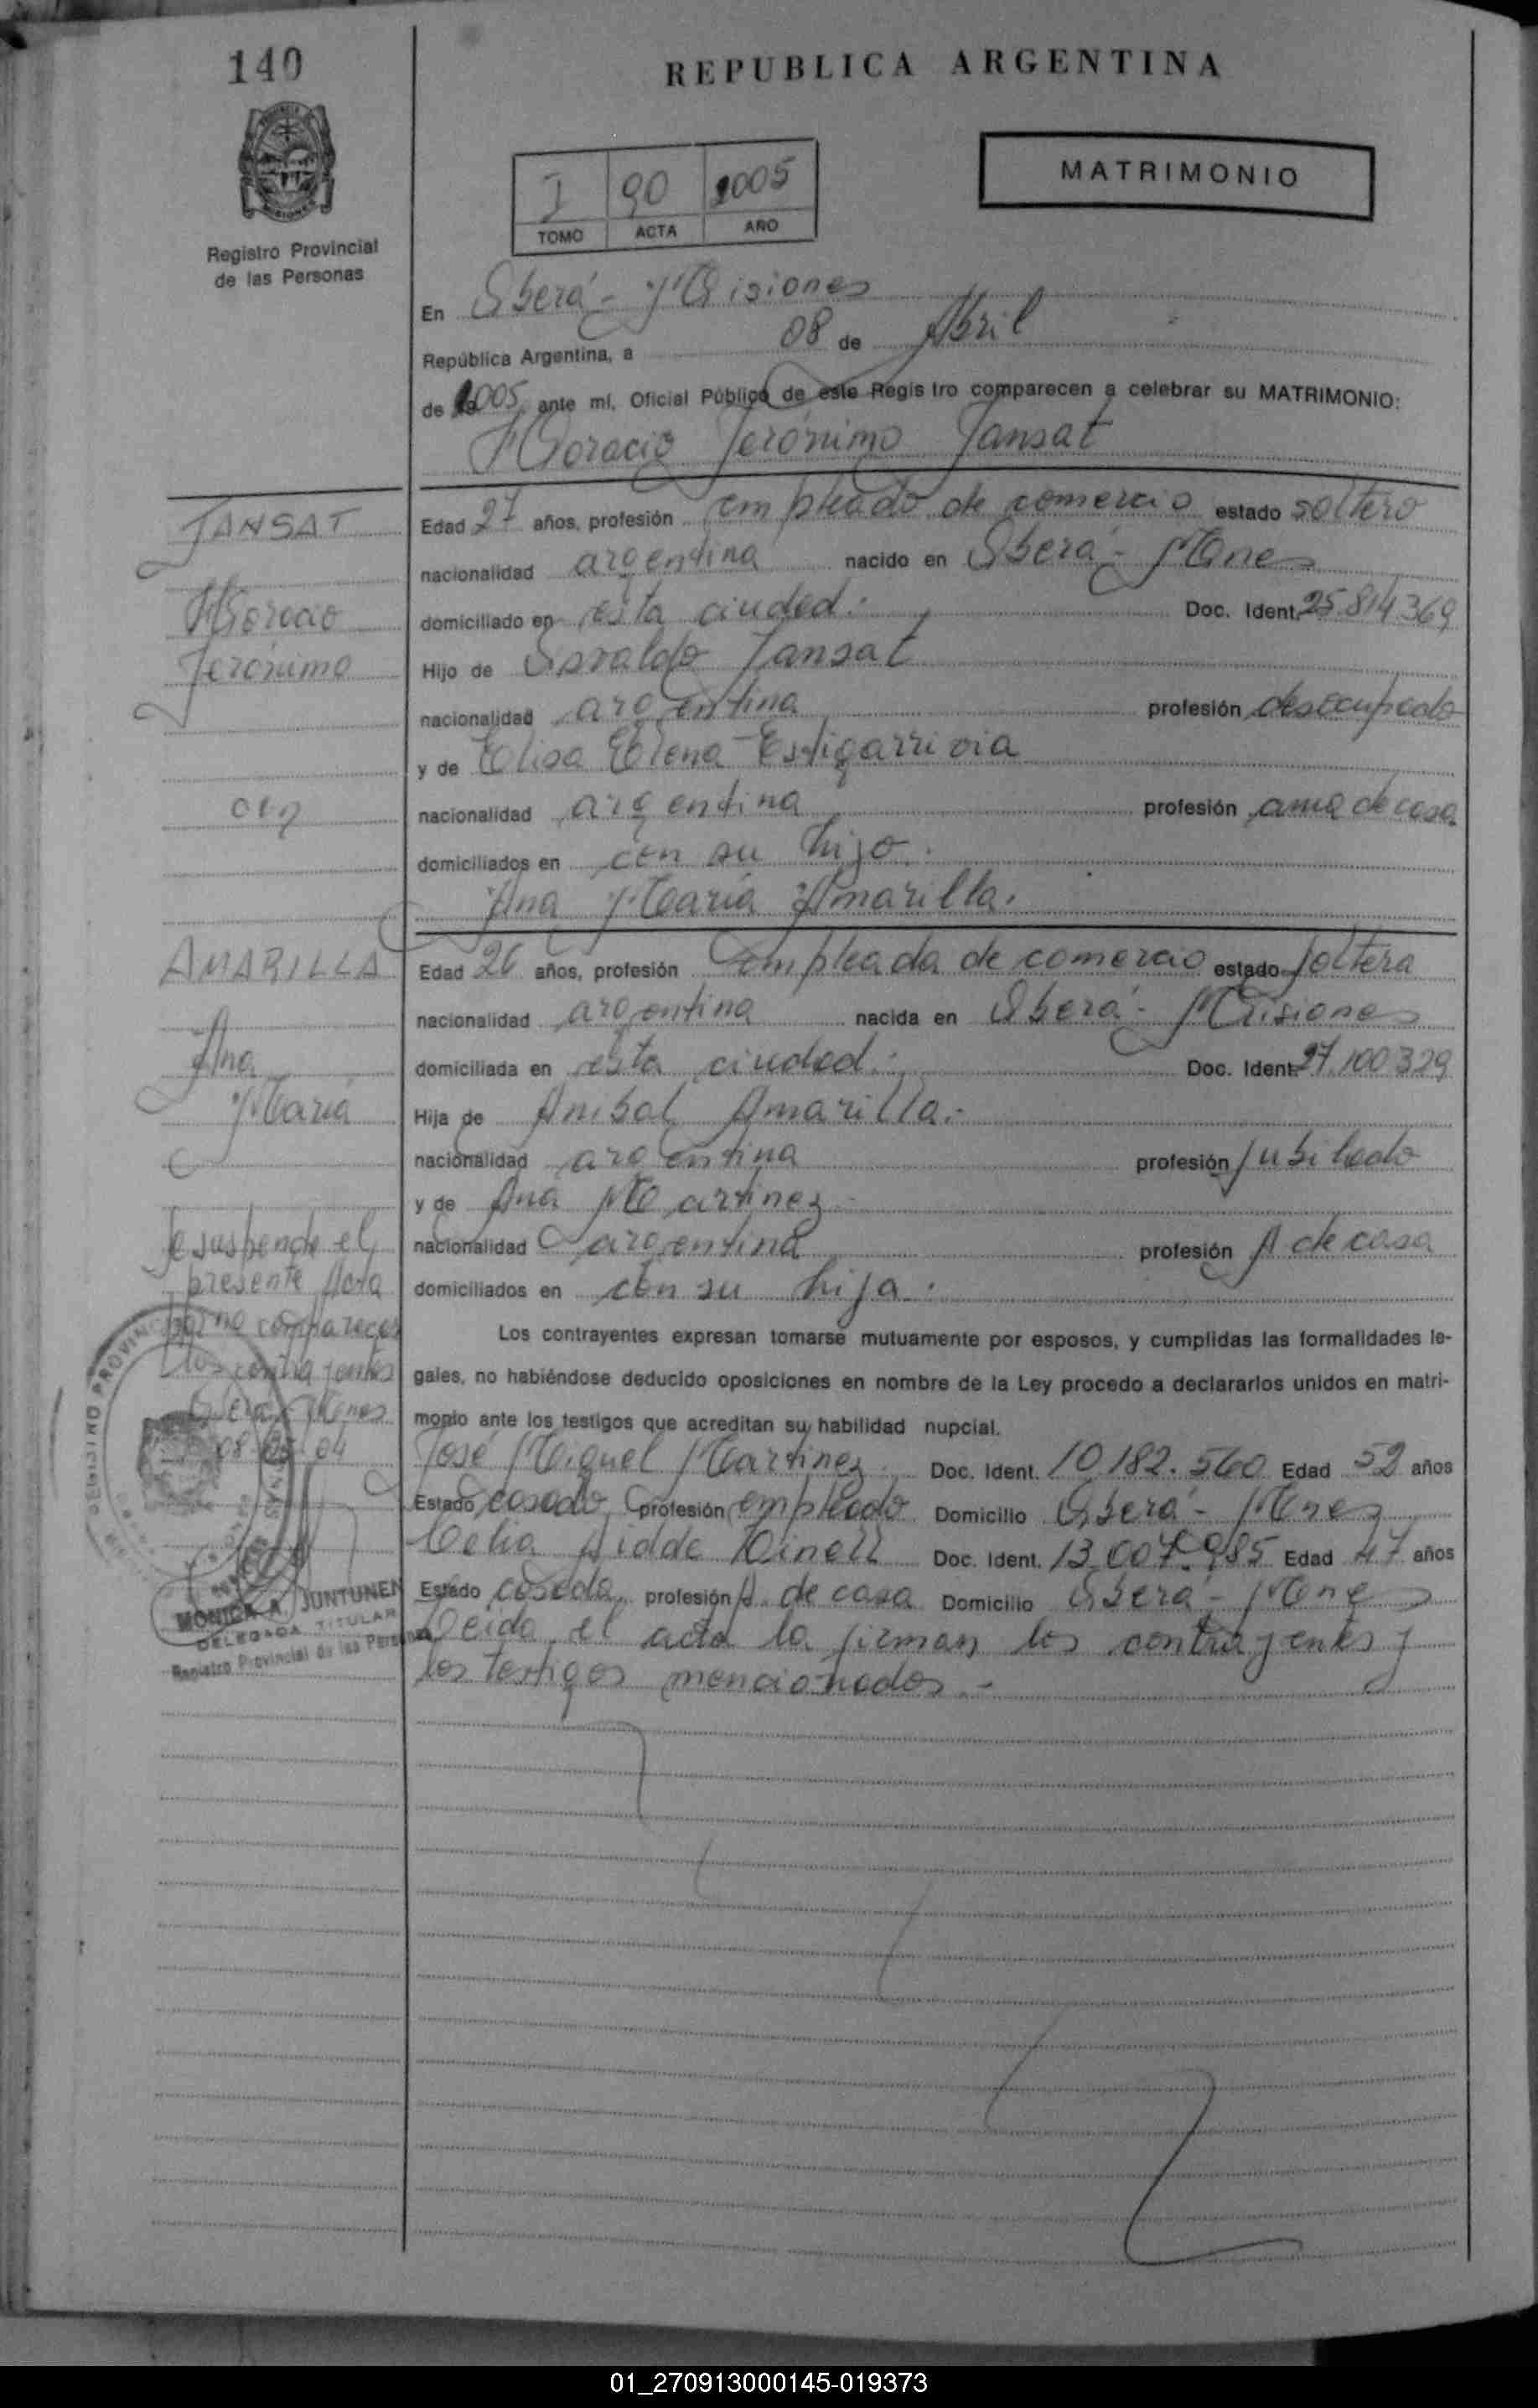 140
REPUBLICA ARGENTINA
MATRIMONIO
I 90 2005
TOMO ACTA AÑO
Registro Provincial
de las Personas
En Oberá - Misiones
República Argentina, a 08 de Abril
de 2005 ante mí, Oficial Público de este Registro comparecen a celebrar su MATRIMONIO:
Horacio Jerónimo Jansat
JANSAT
Horacio
Jerónimo
arg
Edad 27 años, profesión empleado de comercio estado soltero
nacionalidad argentina nacido en Oberá - Mnes
domiciliado en esta ciudad. Doc. Ident. 25.814369
Hijo de Osvaldo Jansat
nacionalidad argentina profesión desocupado
y de Elisa Elena Estigarrivia
nacionalidad argentina profesión ama de casa
domiciliados en con su hijo.
Ana María Amarilla.
AMARILLA
Ana
María
Edad 26 años, profesión empleada de comercio estado soltera
nacionalidad argentina nacida en Oberá - Misiones
domiciliada en esta ciudad. Doc. Ident. 27.100329
Hija de Anibal Amarilla.-
nacionalidad argentina profesión Jubilado
y de Ana Martinez
nacionalidad argentina profesión A de casa
domiciliados en con su hija.
Se suspende el
presente Acta
por no comparecer
los contrayentes
Oberá Mnes
08 04
Los contrayentes expresan tomarse mutuamente por esposos, y cumplidas las formalidades le-
gales, no habiéndose deducido oposiciones en nombre de la Ley procedo a declararlos unidos en matri-
monio ante los testigos que acreditan su habilidad nupcial.
José Miguel Martinez Doc. Ident. 10.182.560 Edad 52 años
Estado casado profesión empleado Domicilio Oberá - Mnes
Celia Doc. Ident. 13.007.985 Edad 47 años
Estado casada profesión A. de casa Domicilio Oberá - Mnes
Leida el acta la firman los contrayentes y
los testigos mencionados.-
MONICA A. JUNTUNEN
DELEGADA TITULAR
Registro Provincial de las Personas
01_270913000145-019373